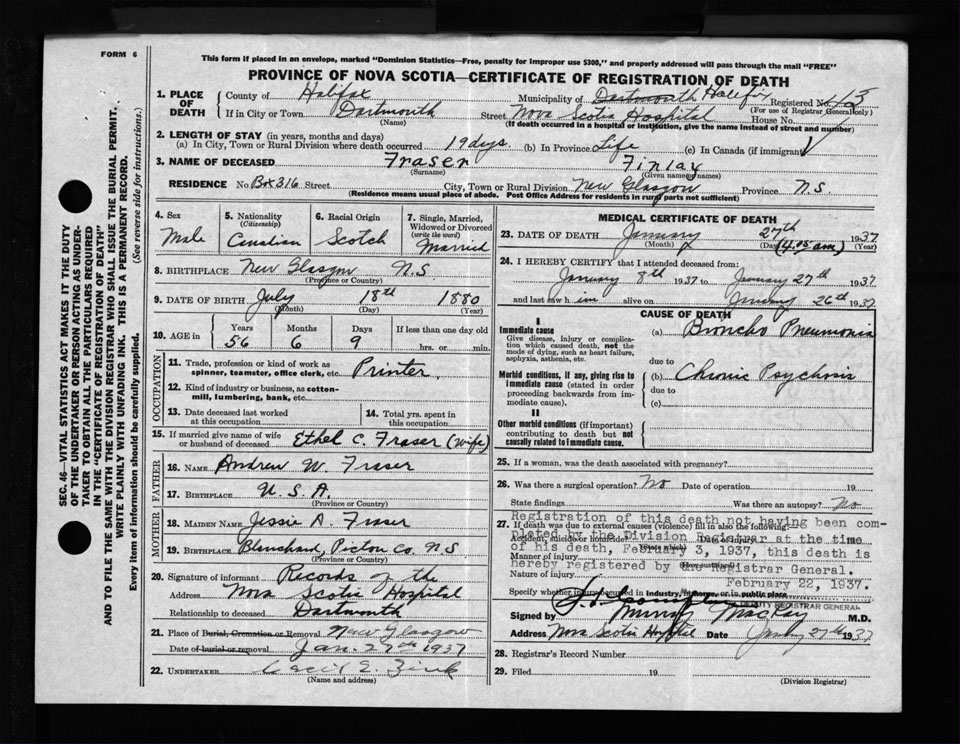 FORM 6
This form if placed in an envelope, marked "Dominion Statistics—Free, penalty for improper use $300," and properly addressed will pass through the mail "FREE"
PROVINCE OF NOVA SCOTIA—CERTIFICATE OF REGISTRATION OF DEATH
SEC. 46—VITAL STATISTICS ACT MAKES IT THE DUTY
OF THE UNDERTAKER OR PERSON ACTING AS UNDER-
TAKER TO OBTAIN ALL THE PARTICULARS REQUIRED
IN THE "CERTIFICATE OF REGISTRATION OF DEATH"
AND TO FILE THE SAME WITH THE DIVISION REGISTRAR WHO SHALL ISSUE THE BURIAL PERMIT.
WRITE PLAINLY WITH UNFADING INK. THIS IS A PERMANENT RECORD.
Every item of information should be carefully supplied. (See reverse side for instructions.)
1. PLACE OF DEATH
County of Halifax Municipality of Dartmouth Halifax Registered No. 113
(For use of Registrar General only)
If in City or Town Dartmouth Street Nova Scotia Hospital House No.
(Name) (If death occurred in a hospital or institution, give the name instead of street and number)
2. LENGTH OF STAY (in years, months and days)
(a) In City, Town or Rural Division where death occurred 19 days. (b) In Province Life (c) In Canada (if immigrant)
3. NAME OF DECEASED Fraser Finlay
(Surname) (Given names)
RESIDENCE No. Box 316 Street City, Town or Rural Division New Glasgow Province N.S.
(Residence means usual place of abode. Post Office Address for residents in rural parts not sufficient)
4. Sex Male
5. Nationality (Citizenship) Canadian
6. Racial Origin Scotch
7. Single, Married, Widowed or Divorced (write the word) Married
8. BIRTHPLACE New Glasgow N.S
(Province or Country)
9. DATE OF BIRTH July 18th 1880
(Month) (Day) (Year)
10. AGE in Years 56 Months 6 Days 9 If less than one day old hrs. or min.
OCCUPATION
11. Trade, profession or kind of work as spinner, teamster, office clerk, etc. Printer.
12. Kind of industry or business, as cotton-mill, lumbering, bank, etc.
13. Date deceased last worked at this occupation
14. Total yrs. spent in this occupation
15. If married give name of wife or husband of deceased Ethel C. Fraser (Wife)
FATHER
16. NAME Andrew W. Fraser
17. BIRTHPLACE U.S.A.
(Province or Country)
MOTHER
18. MAIDEN NAME Jessie A. Fraser
19. BIRTHPLACE Blanchard, Pictou Co. N S
(Province or Country)
20. Signature of informant Records of the
Address Nova Scotia Hospital
Relationship to deceased Dartmouth
21. Place of Burial, Cremation or Removal New Glasgow
Date of burial or removal Jan. 27th 1937
22. UNDERTAKER Cecil E. Zink
(Name and address)
MEDICAL CERTIFICATE OF DEATH
23. DATE OF DEATH January 27th (4.05 am) 1937
(Month) (Day) (Year)
24. I HEREBY CERTIFY that I attended deceased from:
January 8th 1937 to January 27th 1937
and last saw him alive on January 26th 1937
CAUSE OF DEATH
I
Immediate cause (a) Broncho Pneumonia
Give disease, injury or complication which caused death, not the mode of dying, such as heart failure, asphyxia, asthenia, etc.
due to
Morbid conditions, if any, giving rise to immediate cause (stated in order proceeding backwards from immediate cause).
(b) Chronic Psychosis
due to
(c)
II
Other morbid conditions (if important) contributing to death but not causally related to immediate cause.
25. If a woman, was the death associated with pregnancy?
26. Was there a surgical operation? No Date of operation 19
State findings Was there an autopsy? No
27. If death was due to external causes (violence) fill in also the following:
Accident, suicide or homicide Date of injury 19
Manner of injury
(How sustained)
Nature of injury
Specify whether injury occurred in industry, in home, or in public place
Registration of this death not having been com-
pleted by the Division Registrar at the time
of his death, February 3, 1937, this death is
hereby registered by the Registrar General.
February 22, 1937.
DEPUTY REGISTRAR GENERAL
Signed by Murray MacKay M.D.
Address Nova Scotia Hospital Date 27th 1937
28. Registrar's Record Number
29. Filed 19
(Division Registrar)